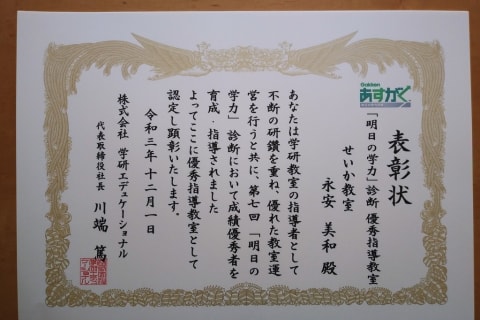 表彰状
Gakken
あすがく
「明日の学力」診断 優秀指導教室
せいか教室
永安 美和 殿
あなたは学研教室の指導者として
不断の研鑽を重ね、優れた教室運
営を行うと共に、第七回「明日の
学力」診断において成績優秀者を
育成・指導されました
よってここに優秀指導教室として
認定し顕彰いたします。
令和三年十二月一日
株式会社 学研エデュケーショナル
代表取締役社長 川端 篤